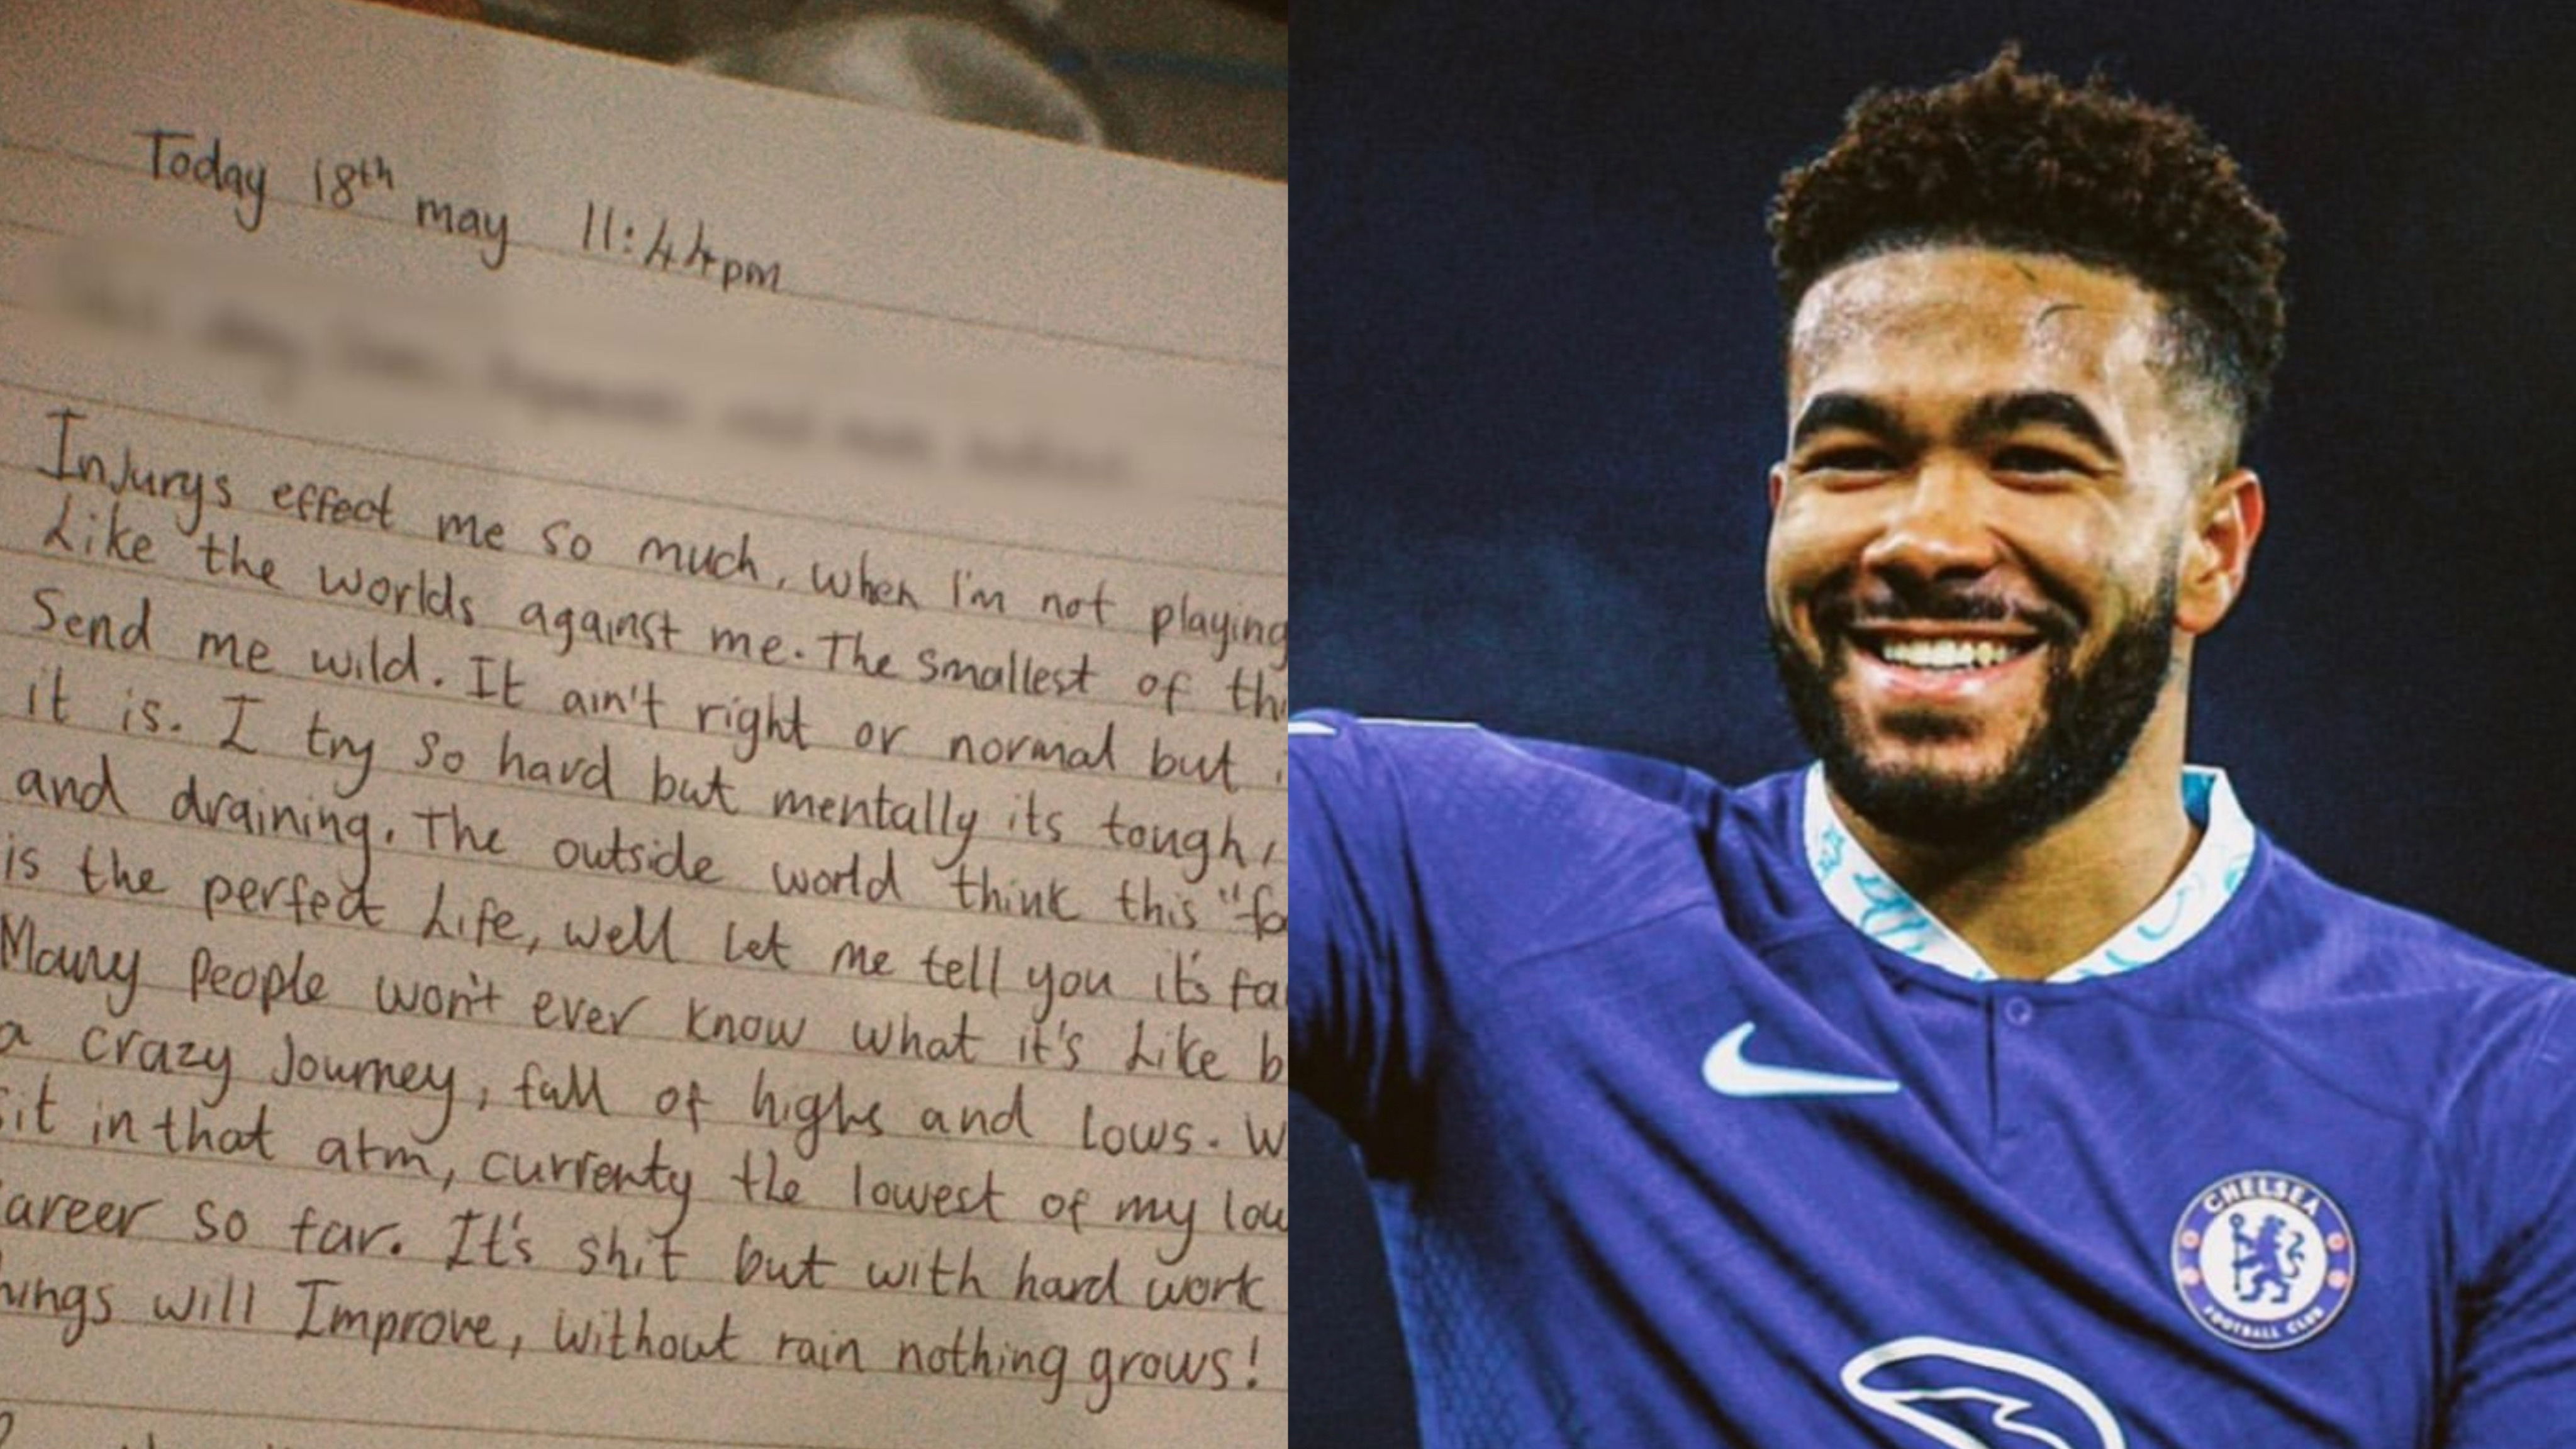 Today 18th may 11:44pm
Injurys effect me so much, when I'm not playing
Like the worlds against me. The smallest of
Send me wild. It ain't right or normal but
it is. I try so hard but mentally its tough,
and draining. The outside world think this
is the perfect Life, well let me tell you it's
Many people won't ever know what it's Like
a crazy Journey, full of highs and lows.
in that atm, currenty the lowest of my
so far. It's shit but with hard work
will Improve, without rain nothing grows!
CHELSEA
FOOTBALL CLUB